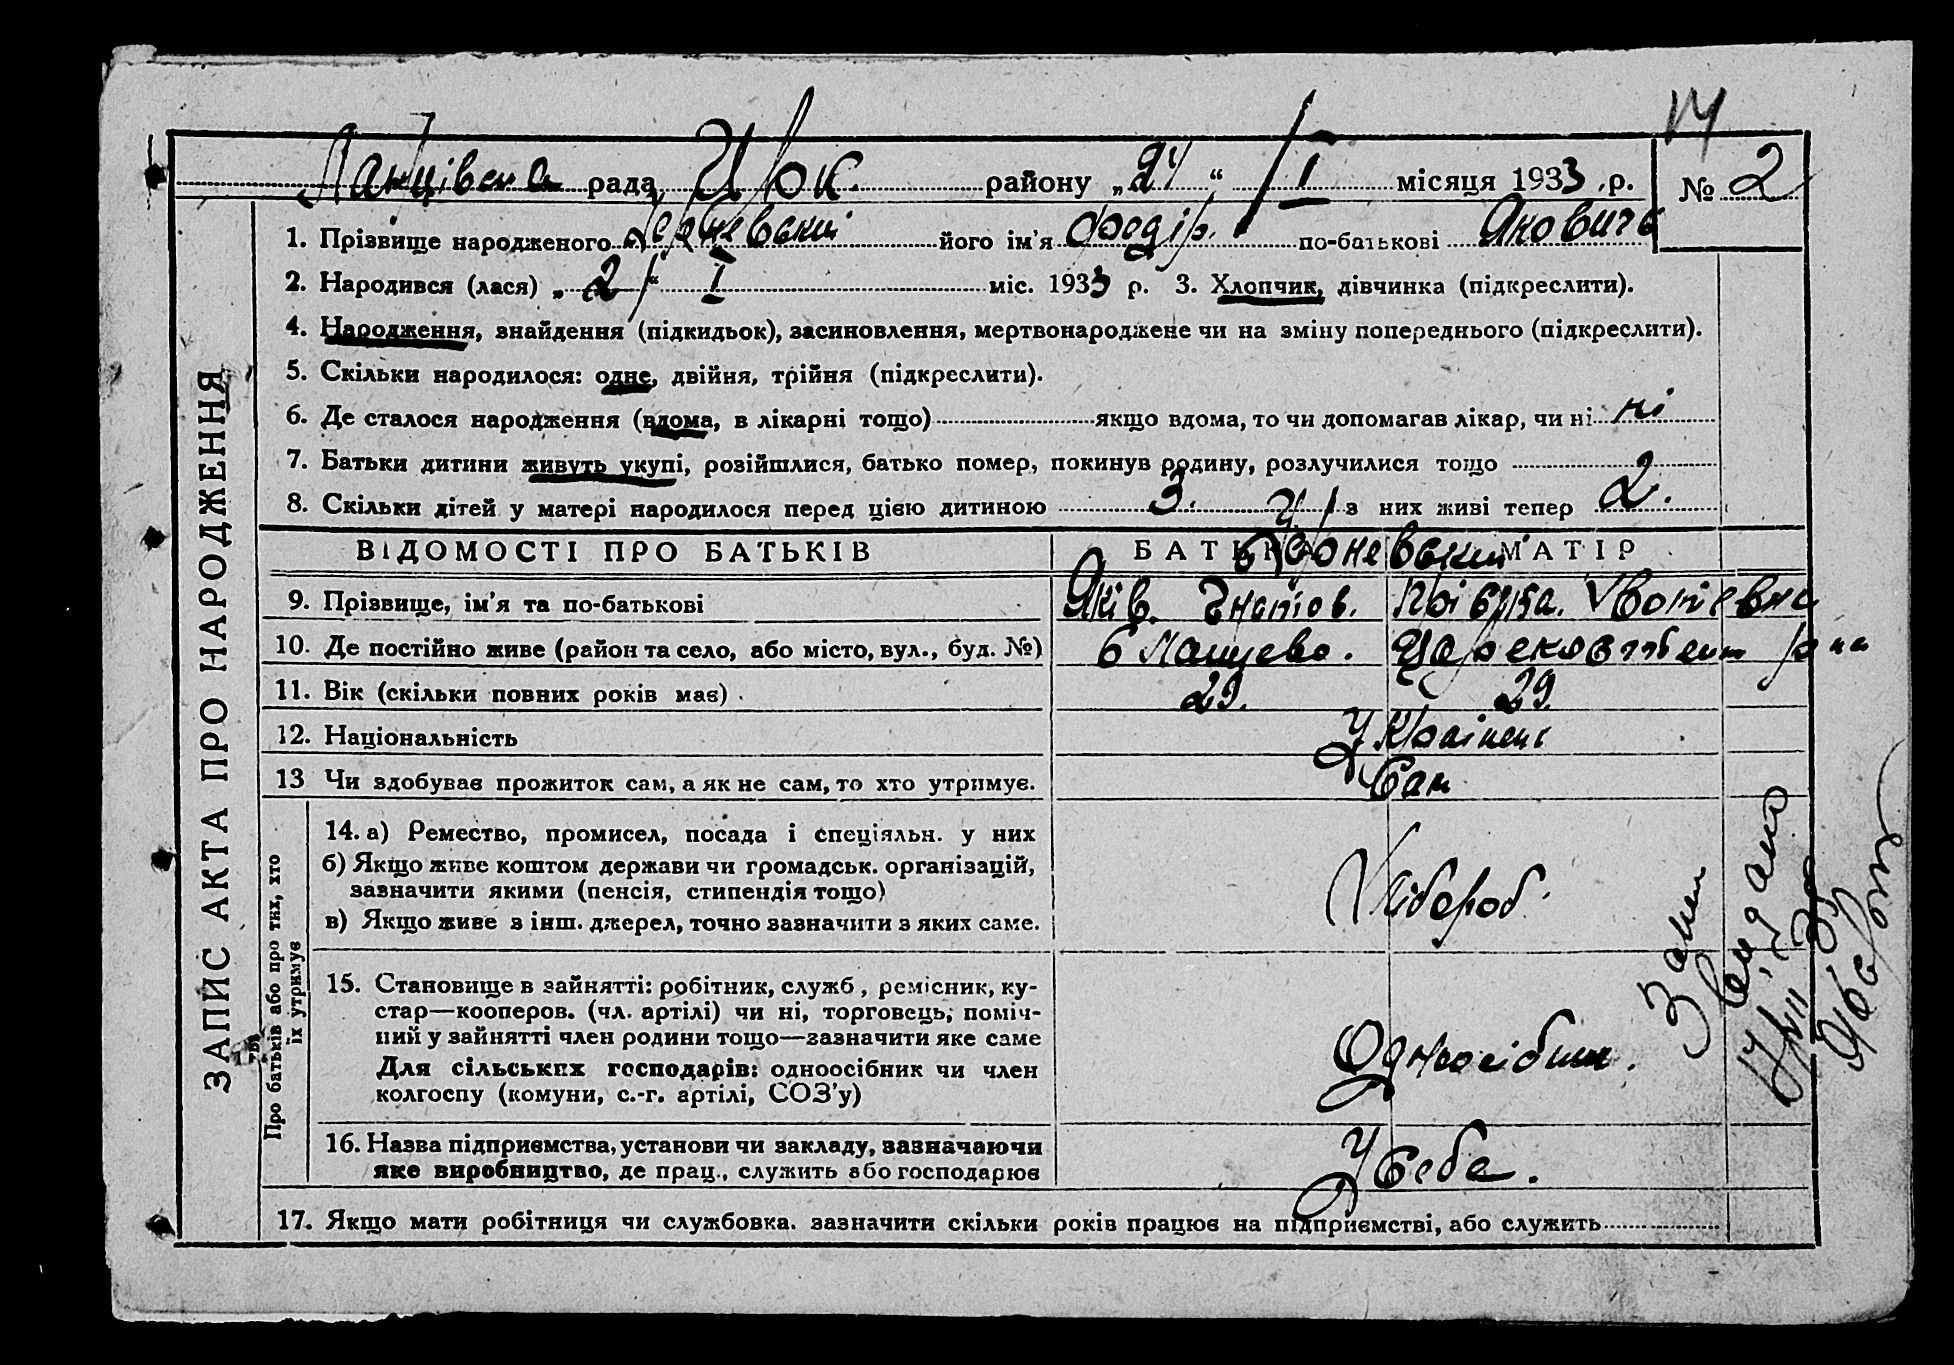 14
рада, району „24“ I місяця 1933 р. № 2
ЗАПИС АКТА ПРО НАРОДЖЕННЯ
1. Прізвище народженого його ім'я Федір. по-батькові Якович
2. Народився (лася) „2“ I міс. 1933 р. 3. Хлопчик, дівчинка (підкреслити).
4. Народження, знайдення (підкидьок), засиновлення, мертвонароджене чи на зміну попереднього (підкреслити).
5. Скільки народилося: одне, двійня, трійня (підкреслити).
6. Де сталося народження (вдома, в лікарні тощо) якщо вдома, то чи допомагав лікар, чи ні ні
7. Батьки дитини живуть укупі, розійшлися, батько помер, покинув родину, розлучилися тощо
8. Скільки дітей у матері народилося перед цією дитиною 3. з них живі тепер 2.
ВІДОМОСТІ ПРО БАТЬКІВ БАТЬКО МАТІР
9. Прізвище, ім'я та по-батькові Яків.
10. Де постійно живе (район та село, або місто, вул., буд. №)
11. Вік (скільки повних років має) 29. 29.
12. Національність Українец
13 Чи здобуває прожиток сам, а як не сам, то хто утримує. Сам
Про батьків або про тих, хто їх утримує
14. а) Ремество, промисел, посада і спеціяльн. у них
б) Якщо живе коштом держави чи громадськ. організацій,
зазначити якими (пенсія, стипендія тощо)
Хлібороб.
в) Якщо живе з інш. джерел, точно зазначити з яких саме.
15. Становище в зайнятті: робітник, служб, ремісник, ку-
стар—кооперов. (чл. артілі) чи ні, торговець, поміч-
ний у зайнятті член родини тощо—зазначити яке саме
Одноосібник.
Для сільських господарів: одноосібник чи член
колгоспу (комуни, с.-г. артілі, СОЗ'у)
16. Назва підприємства, установи чи закладу, зазначаючи
яке виробництво, де прац., служить або господарює
У себе.
17. Якщо мати робітниця чи службовка, зазначити скільки років працює на підприємстві, або служить